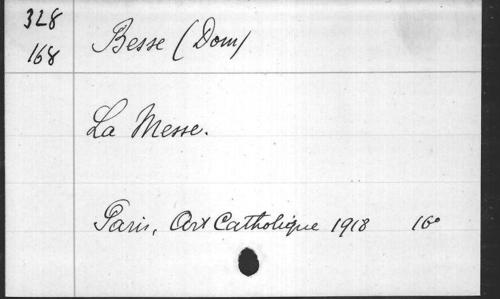 328
168
Besse (Dom)
La Messe.
Paris, Art Catholique 1918 16°